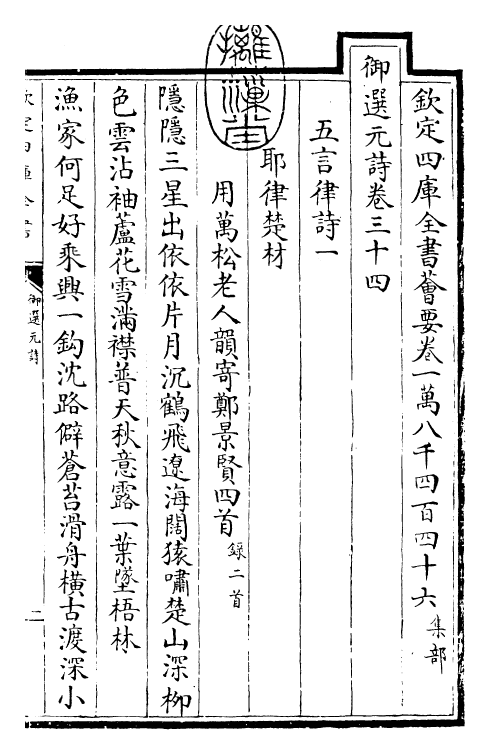 欽定四庫全書薈要卷一萬八千四百四十六 集部
御選元詩卷三十四
五言律詩一
耶律楚材
用萬松老人韻寄鄭景賢四首 錄二首
隱隱三星出依依片月沉鶴飛遼海闊猿嘯楚山深柳
色雲沾袖蘆花雪滿襟普天秋意露一葉墜梧林
漁家何足好乘興一鈎沈路僻蒼苔滑舟橫古渡深小
御選元詩